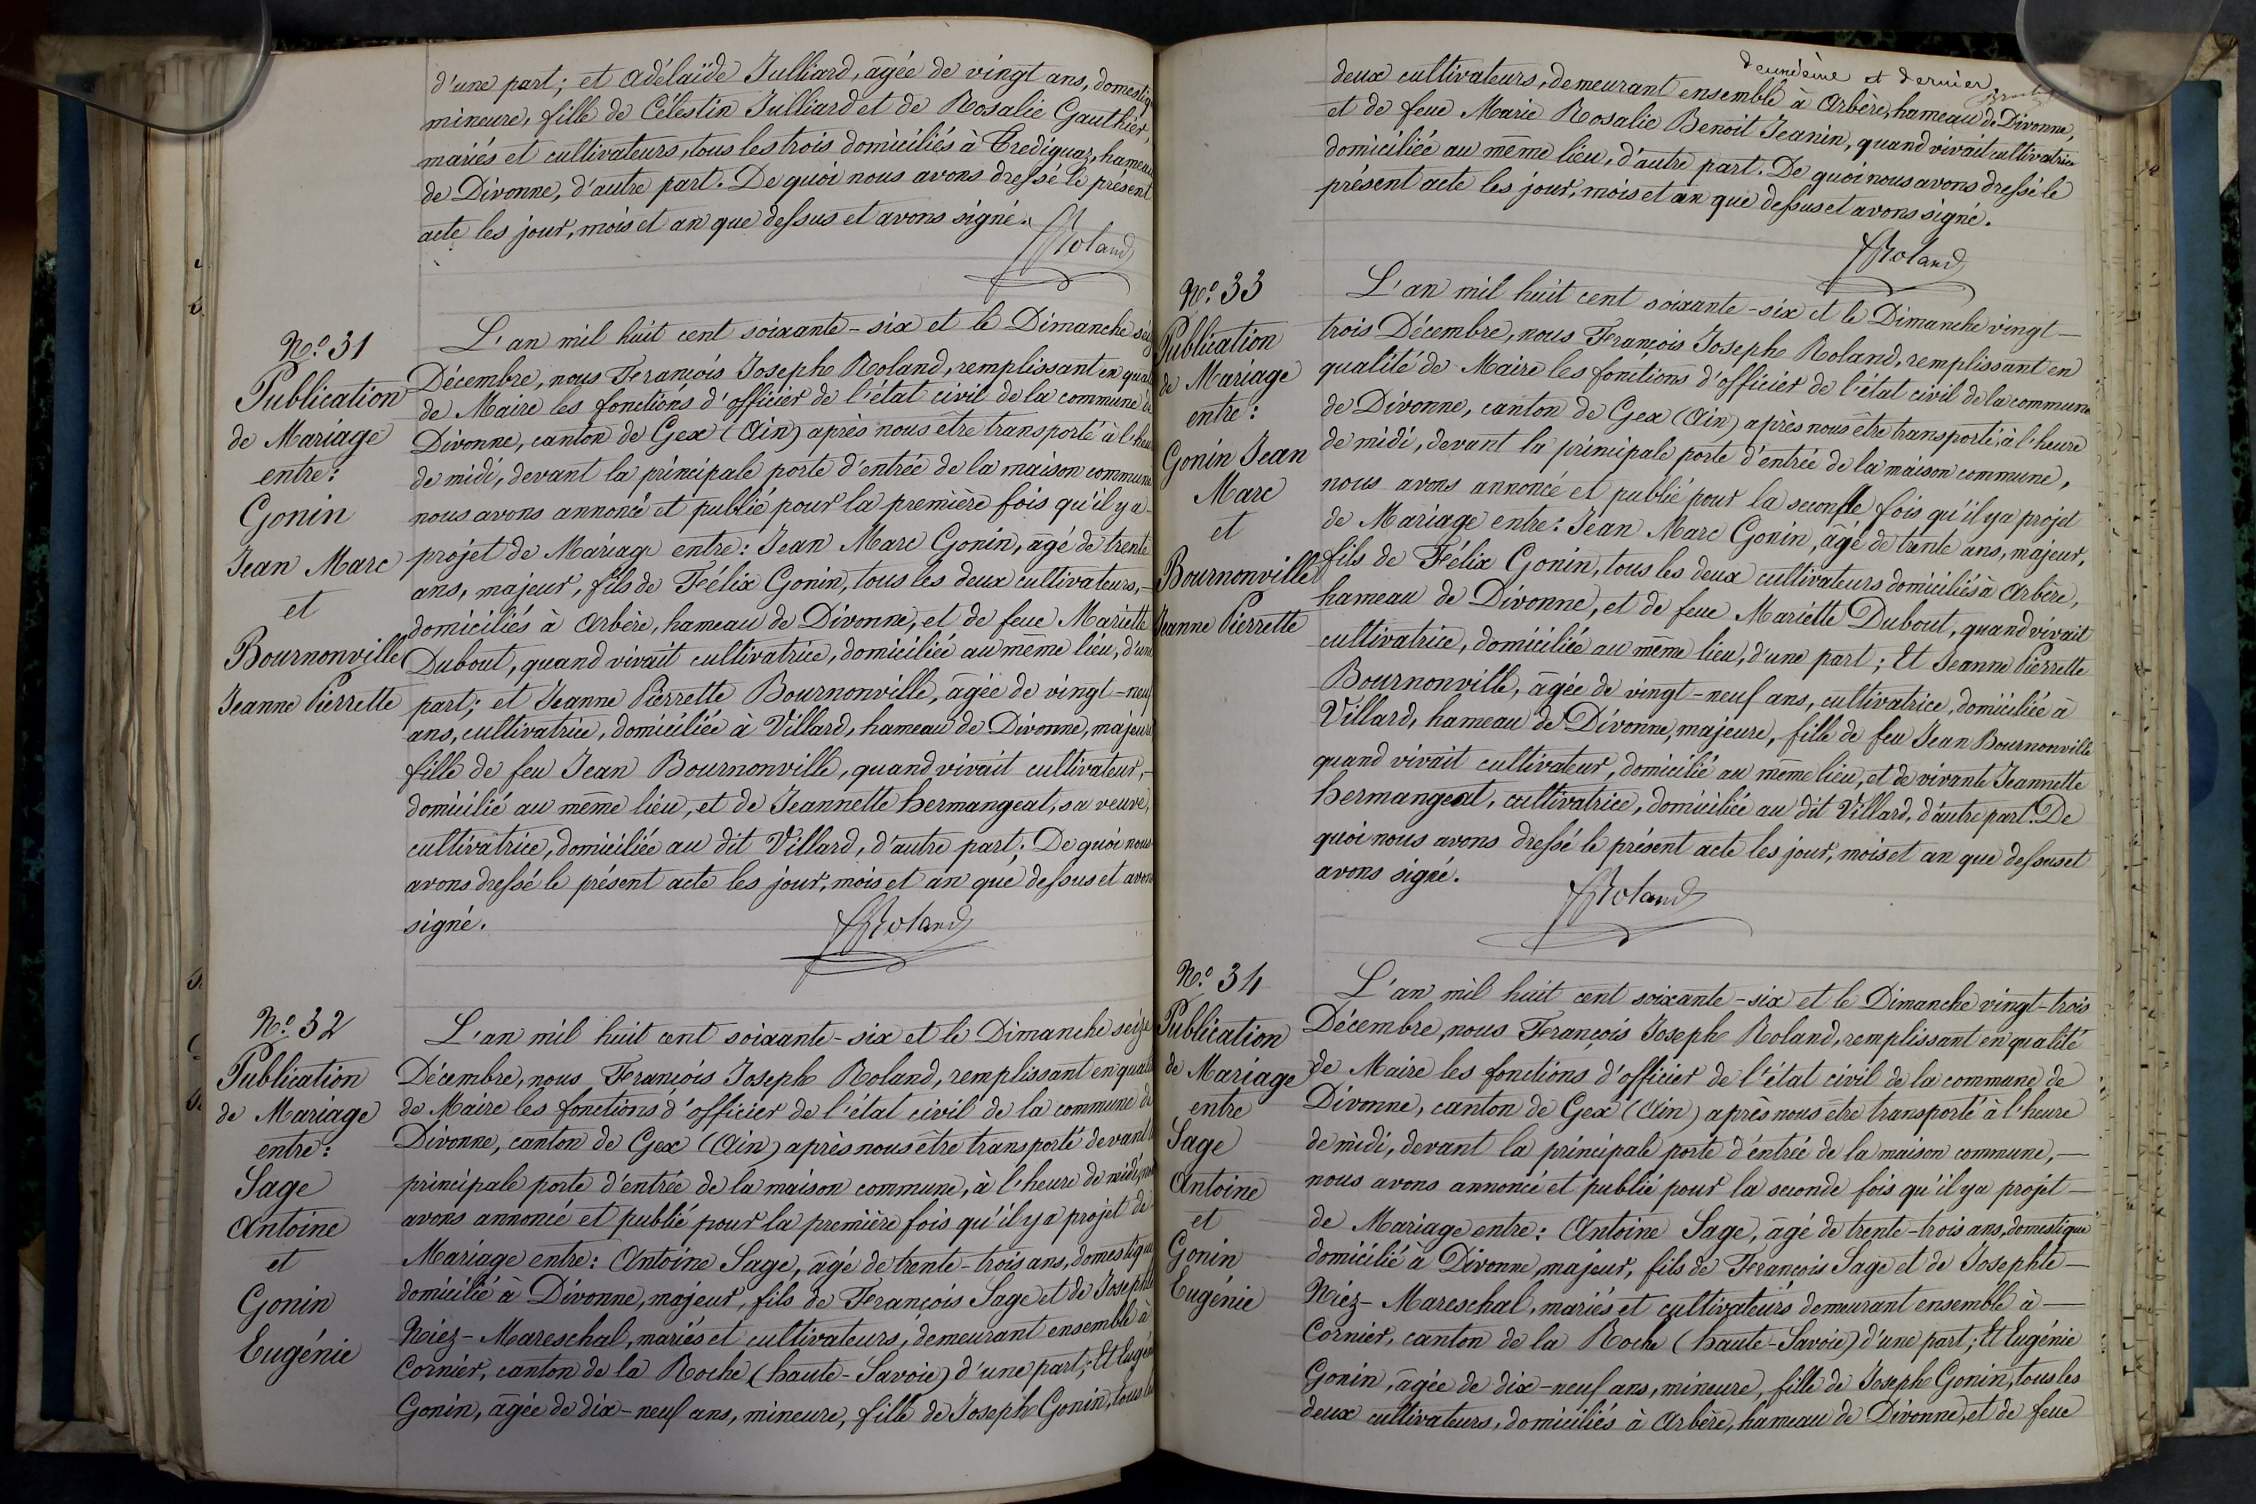 d'une part; et Adélaïde Julliard, âgée de vingt ans,
mineure, fille de Célestin Julliard et de Rosalie Gauthier,
mariés et cultivateurs, tous les trois domiciliés à
de Divonne, d'autre part. De quoi nous avons dressé le présent
acte les jour, mois et an que dessus et avons signé.
Roland
N.º 31
Publication
de Mariage
entre:
Gonin
Jean Marc
et
Bournonville
Jeanne Pierrette
L'an mil huit cent soixante-six et le Dimanche
Décembre, nous François Joseph Roland, remplissant en
de Maire les fonctions d'officier de l'état civil de la commune de
Divonne, canton de Gex (Ain) après nous être transporté à
de midi, devant la principale porte d'entrée de la maison commune
nous avons annoncé et publié pour la première fois qu'il y a
projet de Mariage entre: Jean Marc Gonin, âgé de trente
ans, majeur, fils de Félix Gonin, tous les deux cultivateurs,
domiciliés à Arbère, hameau de Divonne, et de feue Mariette
Dubout, quand vivait cultivatrice, domiciliée au même lieu, d'une
part; et Jeanne Pierrette Bournonville, âgée de vingt-neuf
ans, cultivatrice, domiciliée à Villard, hameau de Divonne, majeure
fille de feu Jean Bournonville, quand vivait cultivateur,
domicilié au même lieu, et de Jeannette hermangeat, sa veuve,
cultivatrice, domiciliée au dit Villard, d'autre part; De quoi nous
avons dressé le présent acte les jour, mois et an que dessus et avons
signé.
Roland
N.º 32
Publication
de Mariage
entre:
Sage
Antoine
et
Gonin
Eugénie
L'an mil huit cent soixante-six et le Dimanche seize
Décembre, nous François Joseph Roland, remplissant en
de Maire les fonctions d'officier de l'état civil de la commune de
Divonne, canton de Gex (Ain) après nous être transporté devant
principale porte d'entrée de la maison commune, à l'heure de midi,
avons annoncé et publié pour la première fois qu'il y a projet de
Mariage entre: Antoine Sage, âgé de trente-trois ans, domestique
domicilié à Divonne, majeur, fils de François Sage et de Josephte
Niez-Mareschal, mariés et cultivateurs, demeurant ensemble à
Cornier, canton de la Roche (haute-Savoie) d'une part; Et
Gonin, âgée de dix-neuf ans, mineure, fille de Joseph Gonin, tous les
deuxième et dernier
deux cultivateurs, demeurant ensemble à Arbère, hameau de Divonne,
et de feue Marie Rosalie Benoit Jeanin, quand vivait cultivatrice
domiciliée au même lieu, d'autre part. De quoi nous avons dressé le
présent acte les jour, mois et an que dessus et avons signé.
Roland
N.º 33
Publication
de Mariage
entre:
Gonin Jean
Marc
et
Bournonville
Jeanne Pierrette
L'an mil huit cent soixante-six et le Dimanche vingt-
trois Décembre, nous François Joseph Roland, remplissant en
qualité de Maire les fonctions d'officier de l'état civil de la commune
de Divonne, canton de Gex (Ain) après nous être transporté à l'heure
de midi, devant la principale porte d'entrée de la maison commune,
nous avons annoncé et publié pour la seconde fois qu'il y a projet
de Mariage entre: Jean Marc Gonin, âgé de trente ans, majeur,
fils de Félix Gonin, tous les deux cultivateurs domiciliés à Arbère,
hameau de Divonne, et de feue Mariette Dubout, quand vivait
cultivatrice, domiciliée au même lieu, d'une part; Et Jeanne Pierrette
Bournonville, âgée de vingt-neuf ans, cultivatrice, domiciliée à
Villard, hameau de Divonne, majeure, fille de feu Jean Bournonville
quand vivait cultivateur, domicilié au même lieu, et de vivante Jeannette
hermangeat, cultivatrice, domiciliée au dit Villard, d'autre part. De
quoi nous avons dressé le présent acte les jour, mois et an que dessus et
avons signé.
Roland
N.º 34
Publication
de Mariage
entre
Sage
Antoine
et
Gonin
Eugénie
L'an mil huit cent soixante-six et le Dimanche vingt-trois
Décembre, nous François Joseph Roland, remplissant en qualité
de Maire les fonctions d'officier de l'état civil de la commune de
Divonne, canton de Gex (Ain) après nous être transporté à l'heure
de midi, devant la principale porte d'entrée de la maison commune,
nous avons annoncé et publié pour la seconde fois qu'il y a projet
de Mariage entre: Antoine Sage, âgé de trente-trois ans, domestique
domicilié à Divonne, majeur, fils de François Sage et de Josephte
Niez-Mareschal, mariés et cultivateurs demeurant ensemble à
Cornier, canton de la Roche (haute-Savoie) d'une part; Et Eugénie
Gonin, âgée de dix-neuf ans, mineure, fille de Joseph Gonin, tous les
deux cultivateurs, domiciliés à Arbère, hameau de Divonne, et de feue